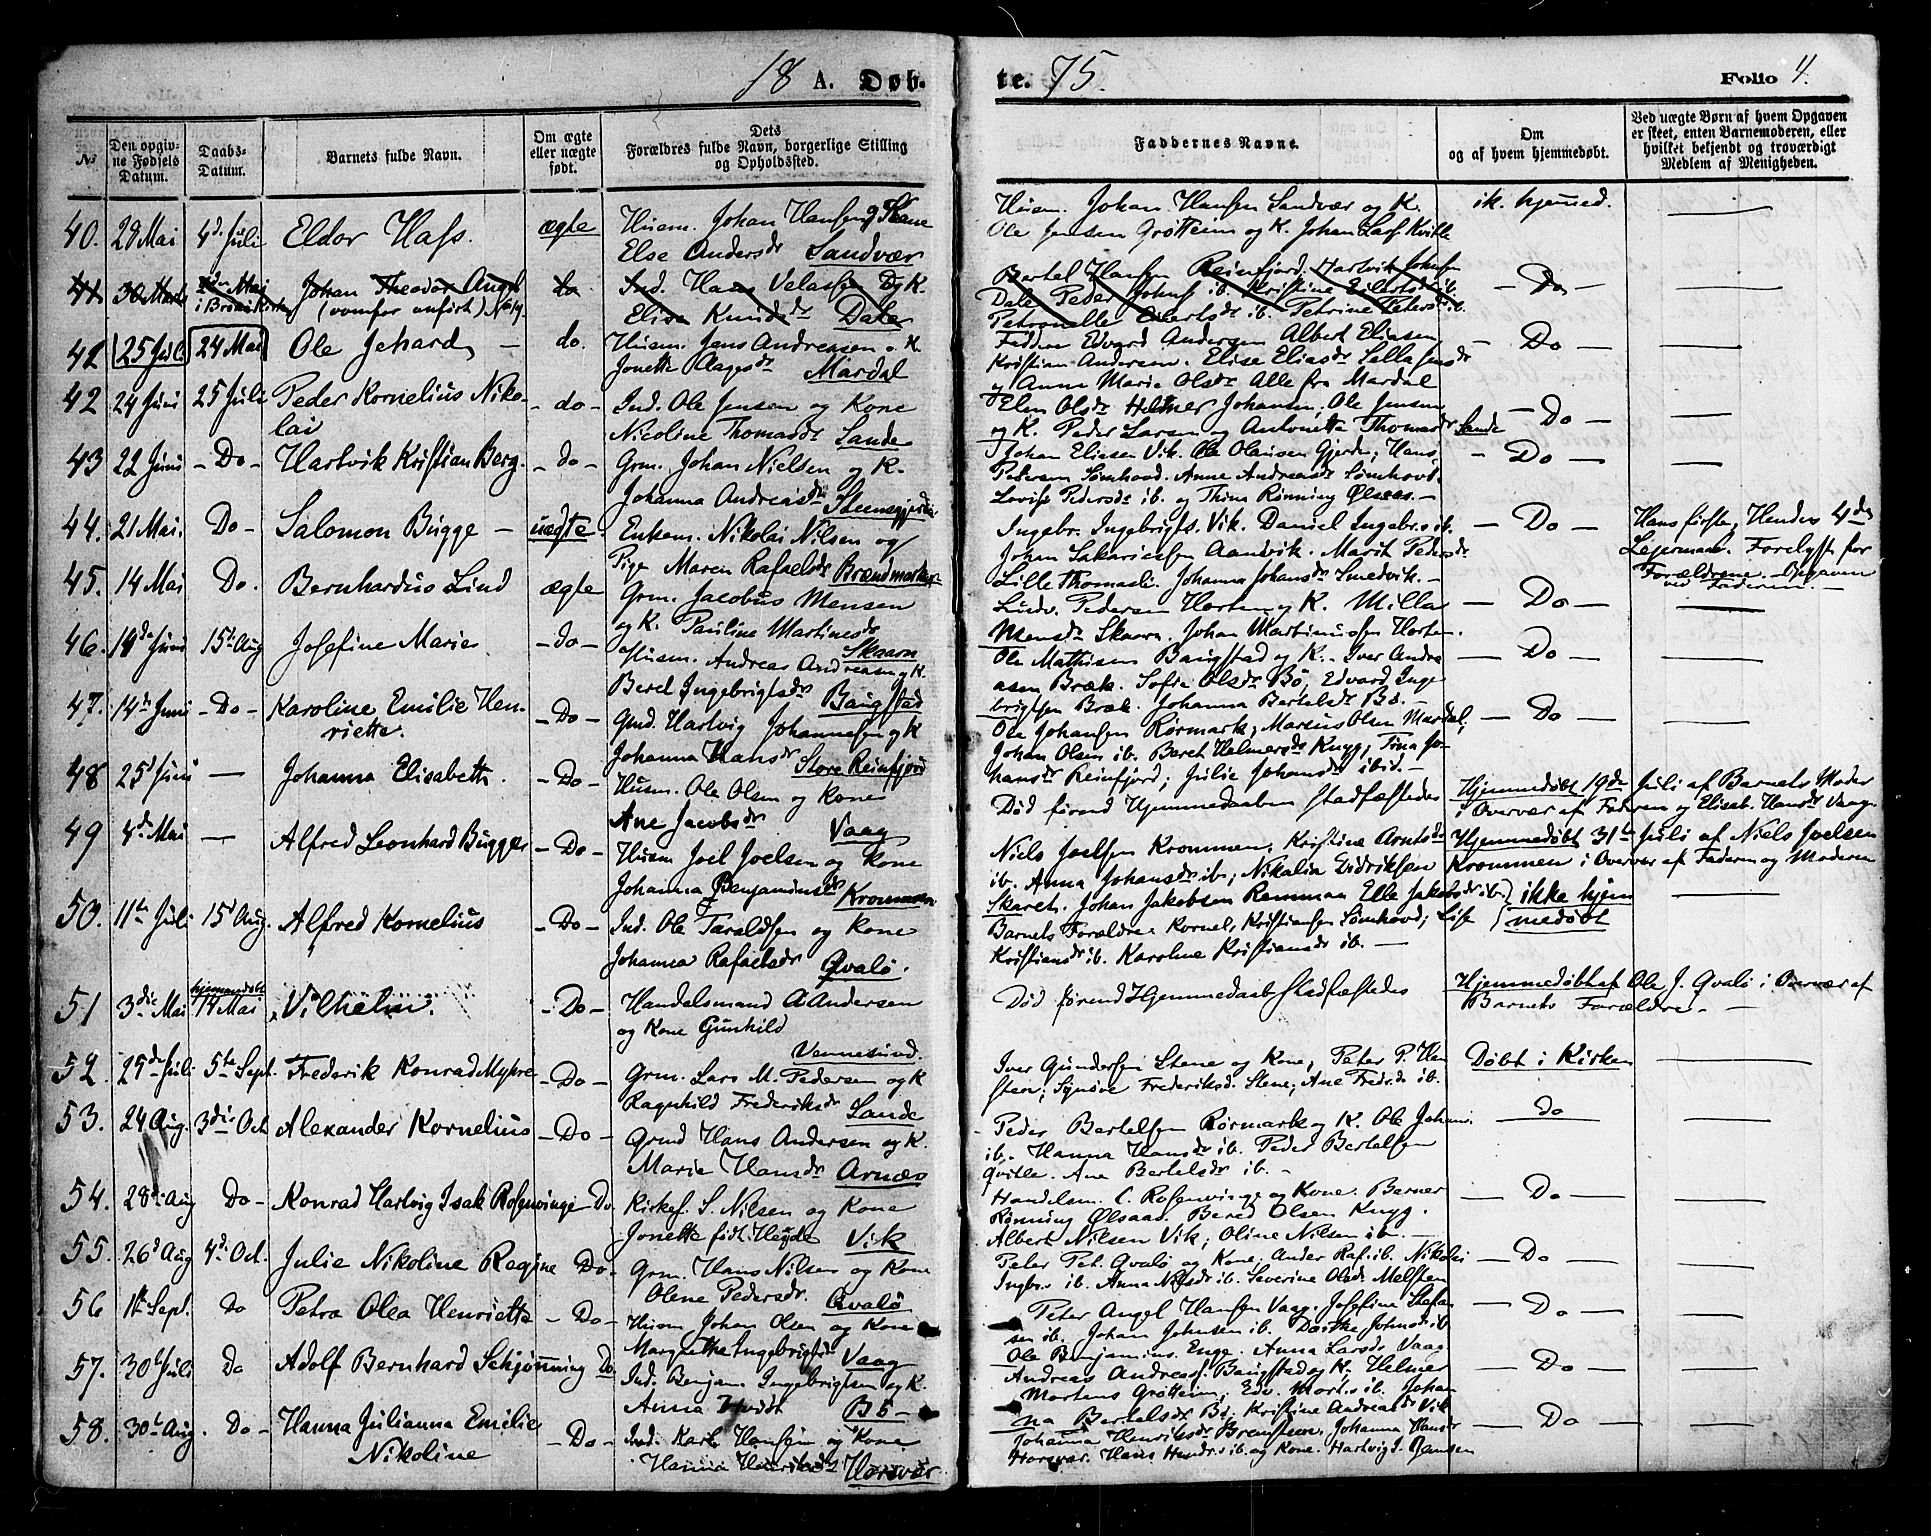 18 A. Døb- te. 75. Folio 4.
№
Den opgivne Fødsels Datum.
Daabs-Datum.
Barnets fulde Navn.
Om ægte eller uægte født.
Dets Forældres fulde Navn, borgerlige Stilling og Opholdssted.
Faddernes Navne.
Om og af hvem hjemmedøbt.
Ved uægte Børn af hvem Opgaven er skeet, enten Barnemoderen, eller hvilket bekjendt og troværdigt Medlem af Menigheden.
40. 28 Mai 4d. Juli Eldor Hass. ægte Husm. Johan Hansen
Else Andersdr Sandvær
Husm. Johan Hansen Sandvær og K.
Ole Jensen Grøtteim og K. Johan Lars Kville
ik. hjemmed.
41 30 Marts Johan Theodor Angel do Ind. Hans Velassen og K
(ovenfor anført) No 19.
Elise Knudsdr Dale
Bertel Hansen Reinfjord. Hartvik Johnsen
Dale Peder Johns ib. Kristine Eilertsdr ib.
Petronelle Eilertsdr ib. Petrine Petersdr ib.
— Do —
41 25 Jul 24 Mai Ole Jehard — do. Husm. Jens Andreasen o. K.
Jonetta Klagesdr Mardal
Faddere Edvard Andersen Albert Eliasen
Kristian Andersen. Elise Eliasdr Lalla Jensdr
og Anne Marie Olsdr Alle fra Mardal
— Do —
42 24 Juni 25 Juli Peder Kornelius Nikolai - do - Ind. Ole Jensen og Kone
Nicoline Thomasdr Sande
Elen Olsdr Helmer Johansen, Ole Jensen
og K. Peder Larsen og Antonette Thomasdr Sande
— Do —
43 22 Juni - Do - Hartvik Kristian Berg. - do - Grm. Johan Nielsen og K.
Johanna Andreasdr Steensgjerdet
Johan Eliesen Vik. Ole Olaisen Gjerde, Hans
Petersen Sømhovd. Anne Andreasdr Sømhovd.
Lovise Pedersdr ib. og Thina Rønning Ølsaas. —
- Do —
44. 21 Mai. Do - Salomon Bugge — uægte. Enkem. Nikolai Nilsen og
Pige Maren Rafaelsdr Brændmarken
Ingebr. Ingebrigts. Vik. Daniel Ingebr.s ib.
Johan Sakariessen Aandvik. Marit Pedersdr
Lille Thomasli. Johanna Johansdr Smedvik. —
— Do — Hans første, Hendes 4de
Lejermaal. Forelyst for
Forældrene. Opgaven
ved Faderen. —
45. 14 Mai Do. Bernhardus Lind ægte Grm. Jacobus Mensen
og K. Pauline Martinesdr
Skaarn
Ludv. Pedersen Horten og K. Milla
Mensdr Skaarn. Johan Martinussen Horten.
— Do —
46. 14de Juni 15d. Aug Josefine Marie - do - Husm. Andreas Andreasen og K.
Berel Ingebrigtsdr Bangstad
Ole Mathisen Bangstad og K. - Iver Andreasen Bræk. Sofie Olsdr Bø, Edvard Ingebrigtsen Bræk. Johanna Bertelsdr Bø. —
— Do —
47. 14de Juni - Do - Karoline Emilie Henriette. - Do - Gmd. Hartvig Johannesen og K
Johanna Hansdr Store Reinfjord
Ole Johansen Rørmark, Marcus Olsen Mardal,
Johan Olsen ib. Beret Helmersdr Knyg, Trina Johansdr Reinfjord; Julie Johansdr ibid. —
— Do —
48 25d Juni — Johanna Elisabeth. - Do - Husm. Ole Olsen og Kone
Ane Jacobsdr Vaag
Død førend Hjemmedaaben stadfæstedes
Hjemmedøbt 19de Juli af Barnets Moder
i Overvær af Faderen og Elisab. Hansdr Vaag.
49 4de Mai — Alfred Leonhard Bugge - Do - Husm Joel Joelsen og Kone
Johanna Benjaminsdr Krommen
Niels Joelsen Krommen, Kristine Arntsdr
ib. Anna Johansdr ib; Nikolai Didriksen
Skaret. Johan Jakobsen Remman Elle Jakobsdr ib.
Hjemmedøbt 31te Juli af Niels Joelsen
Krommen i Overvær af Faderen og Moderen
50. 11te Juli 15d Aug. Alfred Kornelius - Do - Ind. Ole Taraldsen og Kone
Johanna Rafaelsdr Qvalø.
Barnets Forældre Kornel. Kristiansen Sømhovd; Lise
Kristiansdr ib. Karoline Kristiansdr ib. —
ikke hjemmedøbt
51 3die Mai hjemmedøbt 14 Mai Vilhelm. - Do - Handelsmand A Andersen
og Kone Gunhild
Vennesund.
Død førend Hjemmedaab stadfæstedes
Hjemmedøbt af Ole J. Qvalø i Overvær af
Barnets Forældre. —
52. 25de Juli 5te Sept. Frederik Konrad Myhre - Do - Grm. Lars M. Pedersen og K
Ragnhild Frederiksdr Sande
Iver Gundersen Stene og Kone, Peter P. Hansteen; Synøve Frederiksd. Stene; Ane Fredr.ds ib.
Døbt i Kirken
53. 24 Aug. 3die Oct Alexander Kornelius - Do - Grmd Hans Andersen og K.
Marie Hansdr Arnæs
Peder Bertelsen Rørmark og K. Ole Johans.
ib. Hanna Hansdr ib. Peder Bertelsen
Qville. Ane Bertelsdr ib. -
Do
54. 28de Aug Do - Konrad Hartvig Isak Rosenvinge Do. Kirkes. S. Nilsen og Kone
Jonette født Heyde Vik
Handelsm. C. Rosenvinge og Kone. Berner
Rønning Ølsaas. Bered Olsen Knyg.
Albert Nilsen Vik; Oline Nilsen ib. —
— Do —
55. 26d Aug 4d. Oct. Julie Nikoline Regine Do. Grm. Hans Nilsen og Kone
Olene Pedersdr. Qvalø
Peter Pet. Qvalø og Kone, Ander Raf. ib. Nikolai
Ingbr.s ib. Anna Nilsdr ib. Severine Olsdr Melsten
— Do —
56 1ste Sept. Do Petra Olea Henriette - Do - Husm Johan Olsen og Kone
Margrethe Ingebrigtsdr Vaag
Peter Angel Hansen Vaag. Josefine Stefansen ib. Johan Johnsen ib. Dorthe Johnsdr ib
Ole Benjamins. Enge. Anna Larsdr Vaag
— Do —
57. 30te Juli Do Adolf Bernhard Schjønning Do Ind. Benjam. Ingebrigtsen og K.
Anna Hvidt Bø -
Andreas Andreass. Bangstad og K, Helmer
Mortens Grøtteim, Edv. Mort.s ib. Johanna Bertelsdr Bø. Kristine Andreasdr Vik
— Do —
58. 30te Aug. - Do - Hanna Julianna Emelie
Nikoline - Do - Ind. Karl Hansen og Kone
Hanna Henriksdr Horsvær
Johanna Henriksdr Bremsteen. Johanna Hansdr
Horsvær. Hans Hendr.s ib. og Kone. Hartvig J. Jansen
— Do —